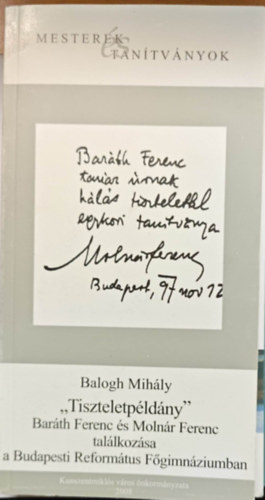 MESTEREK
és
TANÍTVÁNYOK
Baráth Ferenc
tanár úrnak
hálás tisztelettel
egykori tanítványa
Molnár Ferenc
Budapest, 97 nov 12
Balogh Mihály
„Tiszteletpéldány”
Baráth Ferenc és Molnár Ferenc
találkozása
a Budapesti Református Főgimnáziumban
Kunszentmiklós város önkormányzata
2008